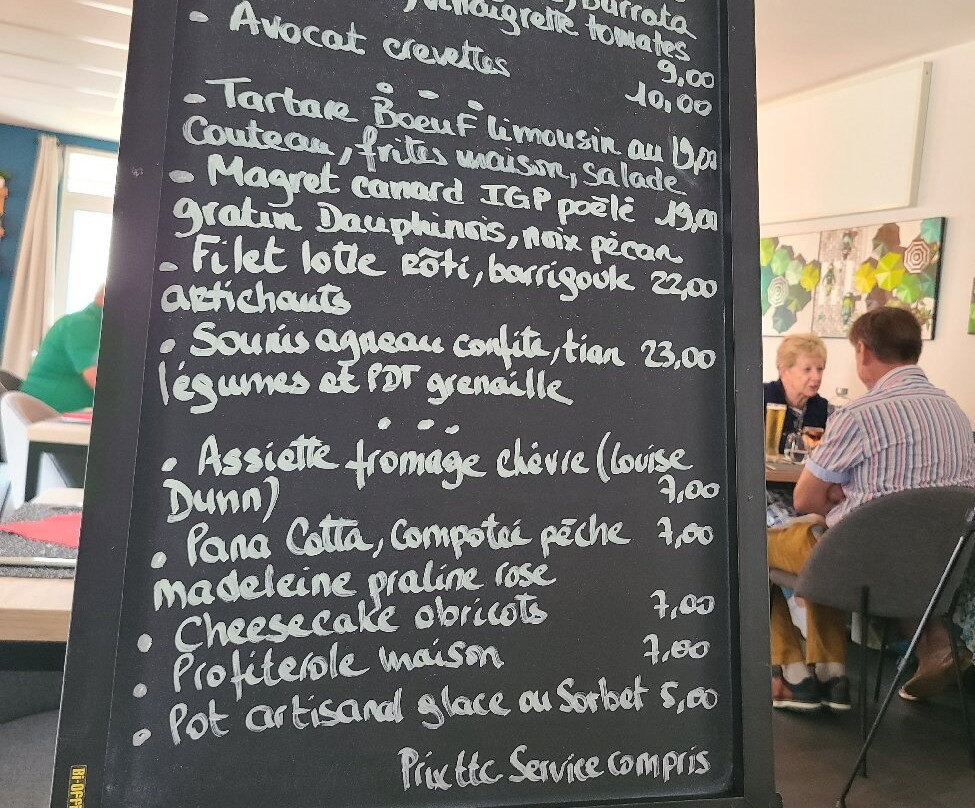 , burrata
, vinaigrette tomates 9,00
- Avocat crevettes 10,00
- Tartare Boeuf limousin au 19,00
couteau, frites maison, salade
- Magret canard IGP poêlé 19,00
gratin Dauphinois, noix pécan
- Filet lotte rôti, barrigoule 22,00
artichauts
- Souris agneau confite, tian 23,00
légumes et PDT grenaille
- Assiette fromage chèvre (Louise
Dunn) 7,00
- Pana Cotta, compotée pêche 7,00
madeleine praline rose
- Cheesecake abricots 7,00
- Profiterole maison 7,00
- Pot artisanal glace ou Sorbet 5,00
Prix ttc Service compris